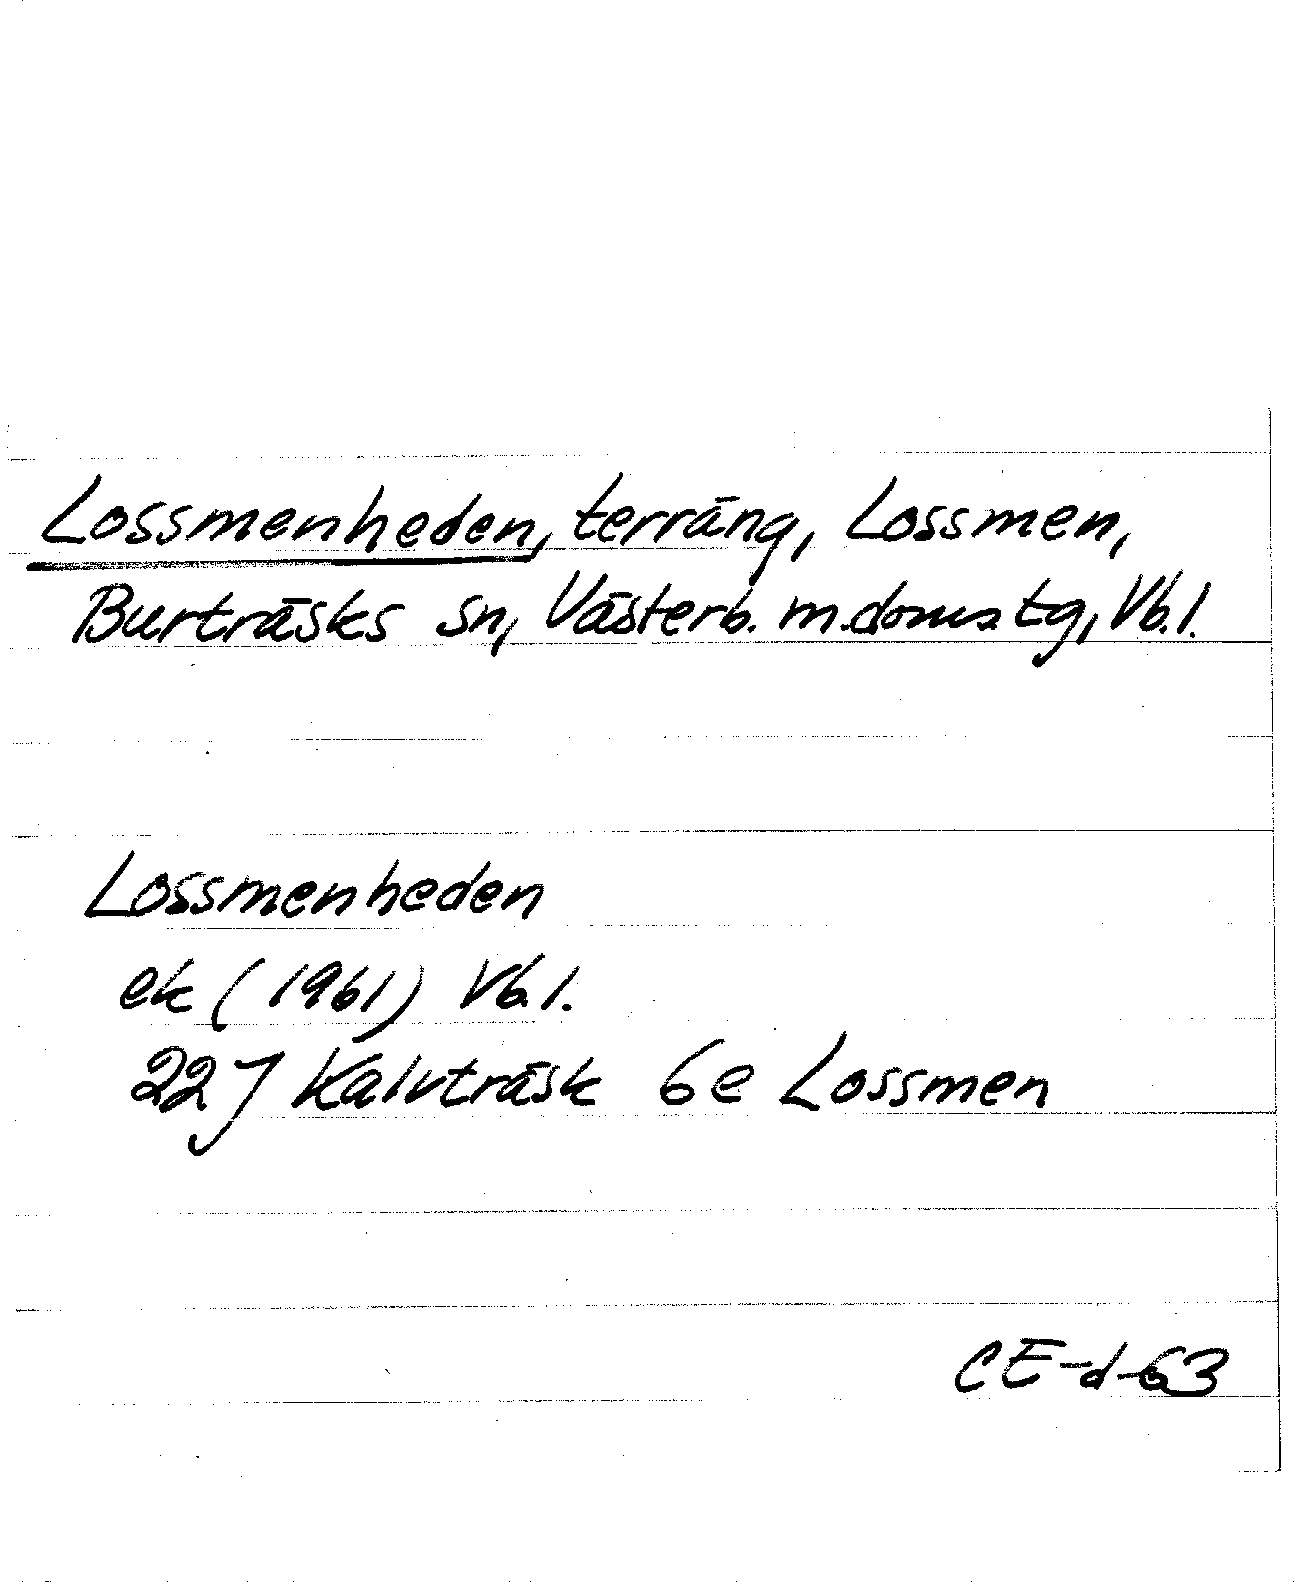 Lossmenheden, terräng, Lossmen,
Burträsks sn, Västerb. m. doms tg, Vb. l.
Lossmenheden
ek (1961) Vb. l.
22 J Kalvträsk 6e Lossmen
CE-d-63